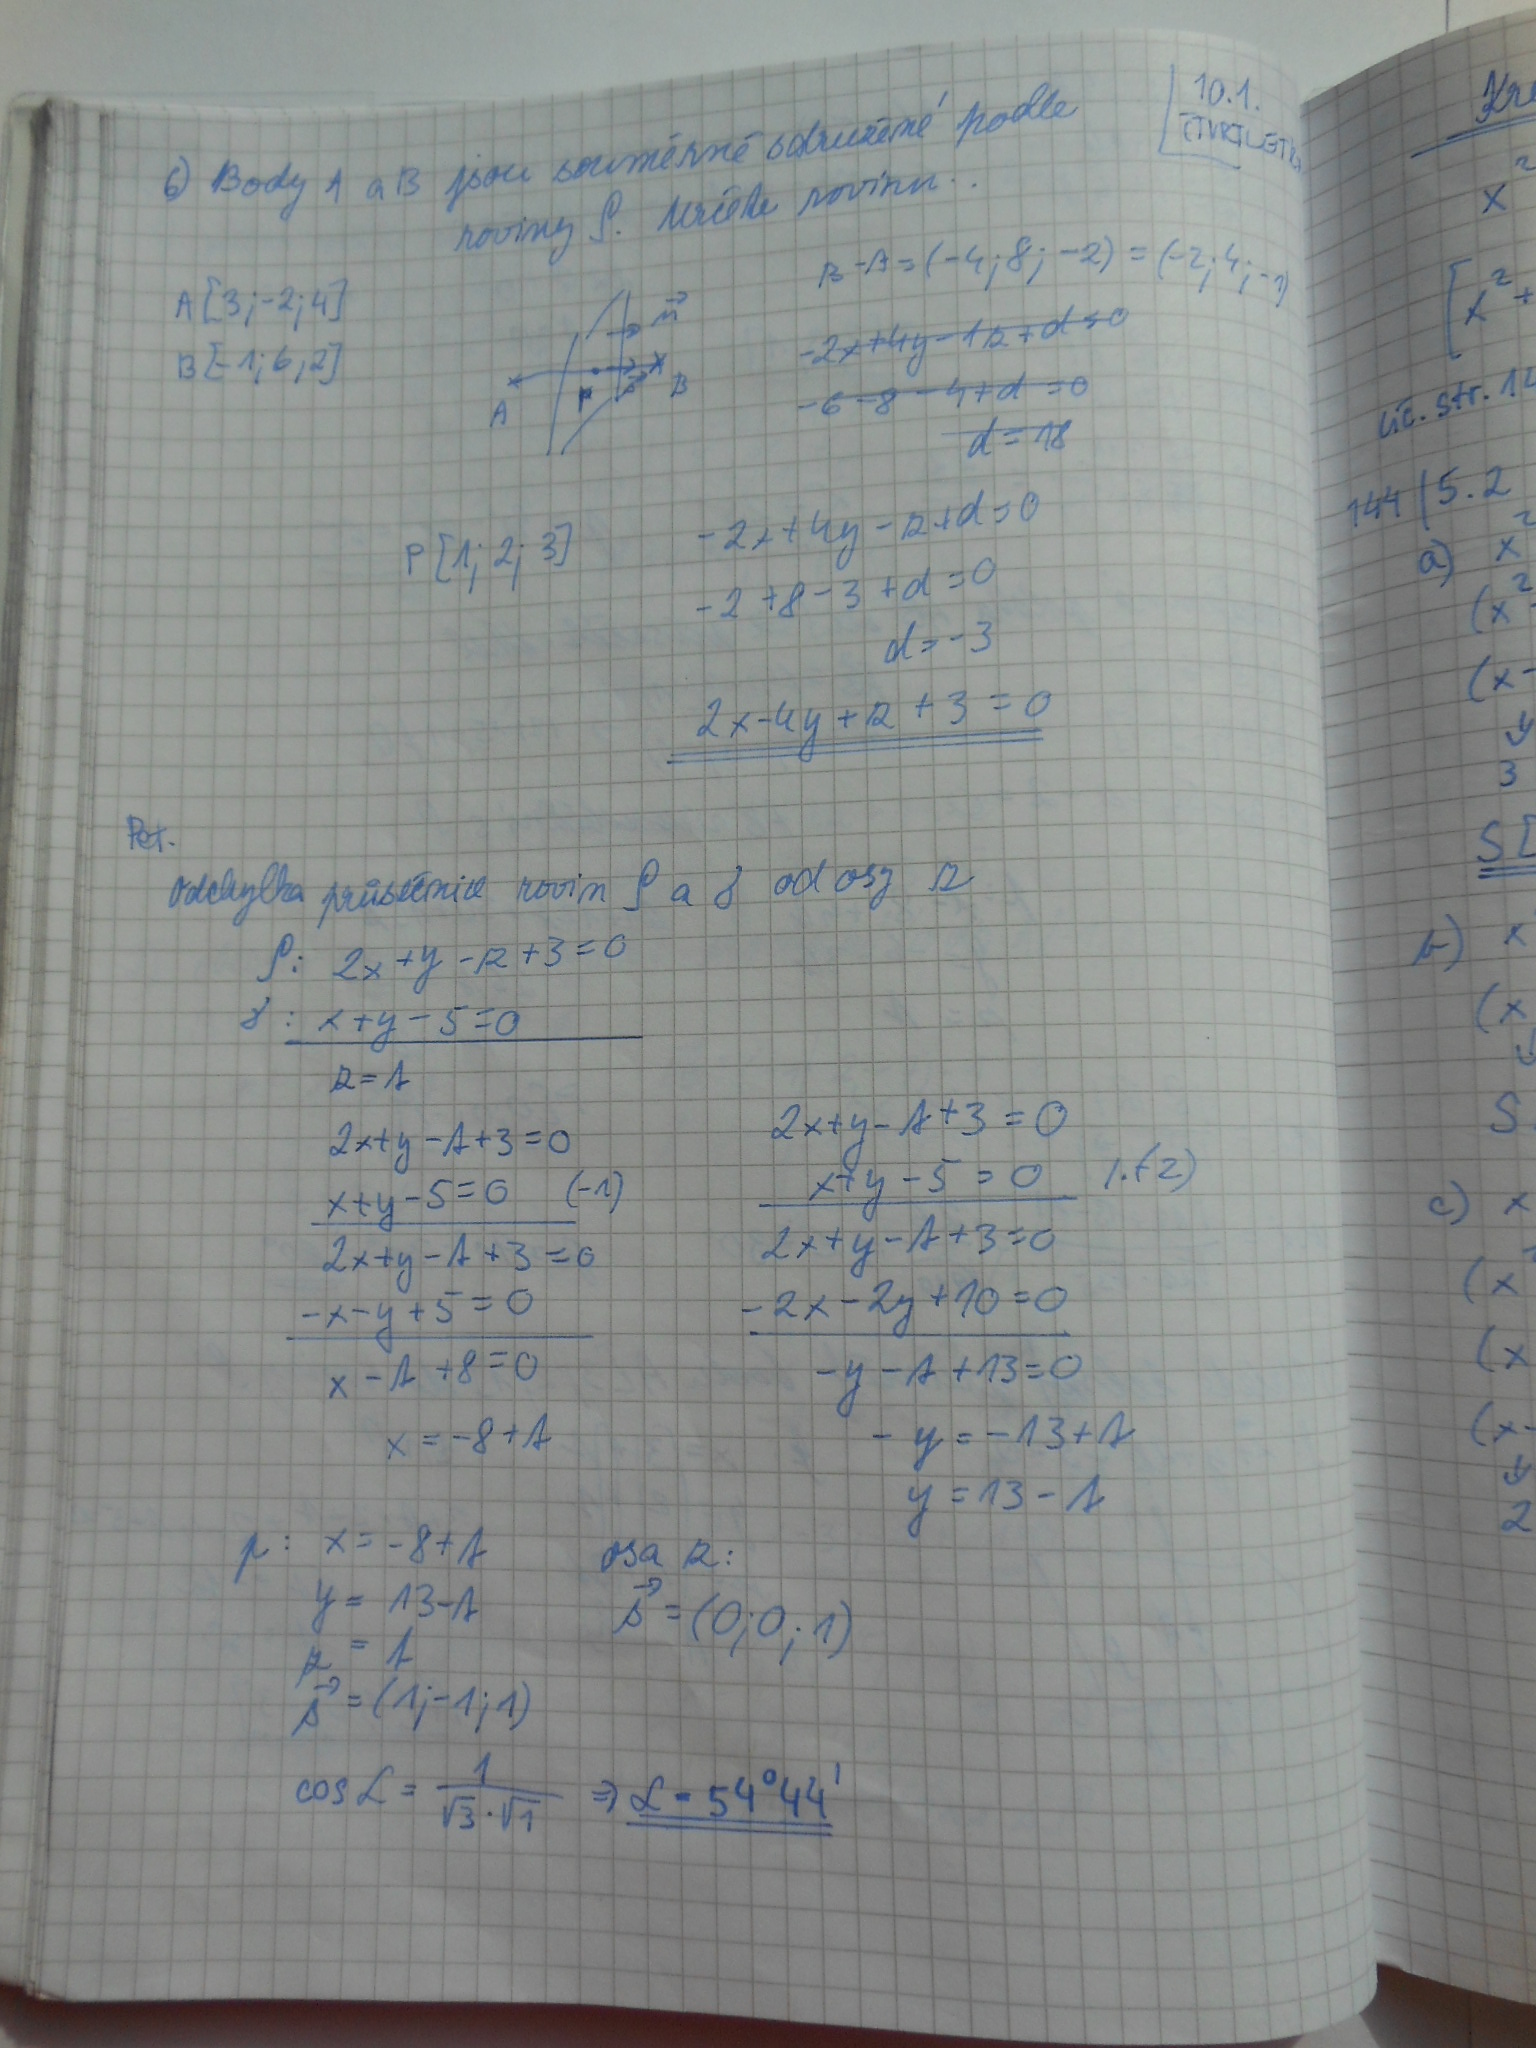 10.1.
ČTVRTLETKA
6) Body A a B jsou souměrně sdružené podle
roviny ρ. Určete rovinu..
A[3;-2;4]
B[-1;6;2]
B-A=(-4;8;-2)=(-2;4;-1)
n
A P s B
-2x+4y-1z+d=0
-6-8-4+d=0
d=18
P[1;2;3]
-2x+4y-z+d=0
-2+8-3+d=0
d=-3
2x-4y+z+3=0
Odchylka průsečnice rovin ρ a γ od osy z
ρ: 2x+y-z+3=0
γ: x+y-5=0
z=t
2x+y-t+3=0
x+y-5=0 (-1)
2x+y-t+3=0
-x-y+5=0
x-t+8=0
x=-8+t
2x+y-t+3=0
x+y-5=0 /·(-2)
2x+y-t+3=0
-2x-2y+10=0
-y-t+13=0
-y=-13+t
y=13-t
p: x=-8+t
y=13-t
z=t
s=(1;-1;1)
osa z:
s=(0;0;1)
cos α = 1/(√3·√1) ⇒ α=54°44'
x²
[x²+
uč. str. 14
144/5.2
a) x²
(x²
(x-
3
S[
b) x
(x
S
c) x
(x
(x
(x-
2